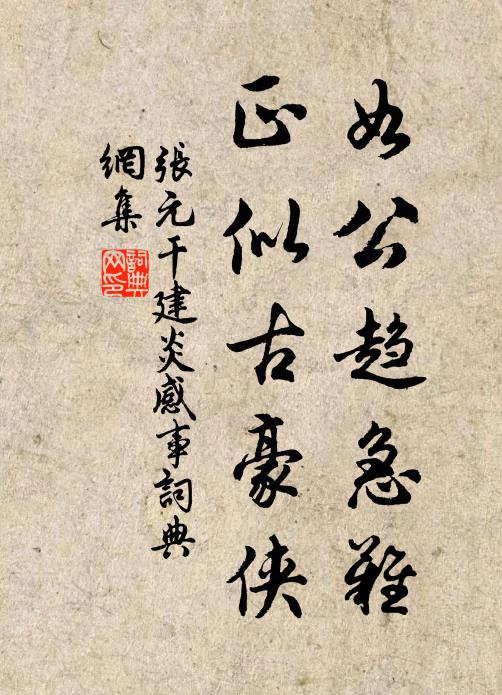 如公趨急難
正似古豪俠
張元干建炎感事詞典
網集
詞典
网印